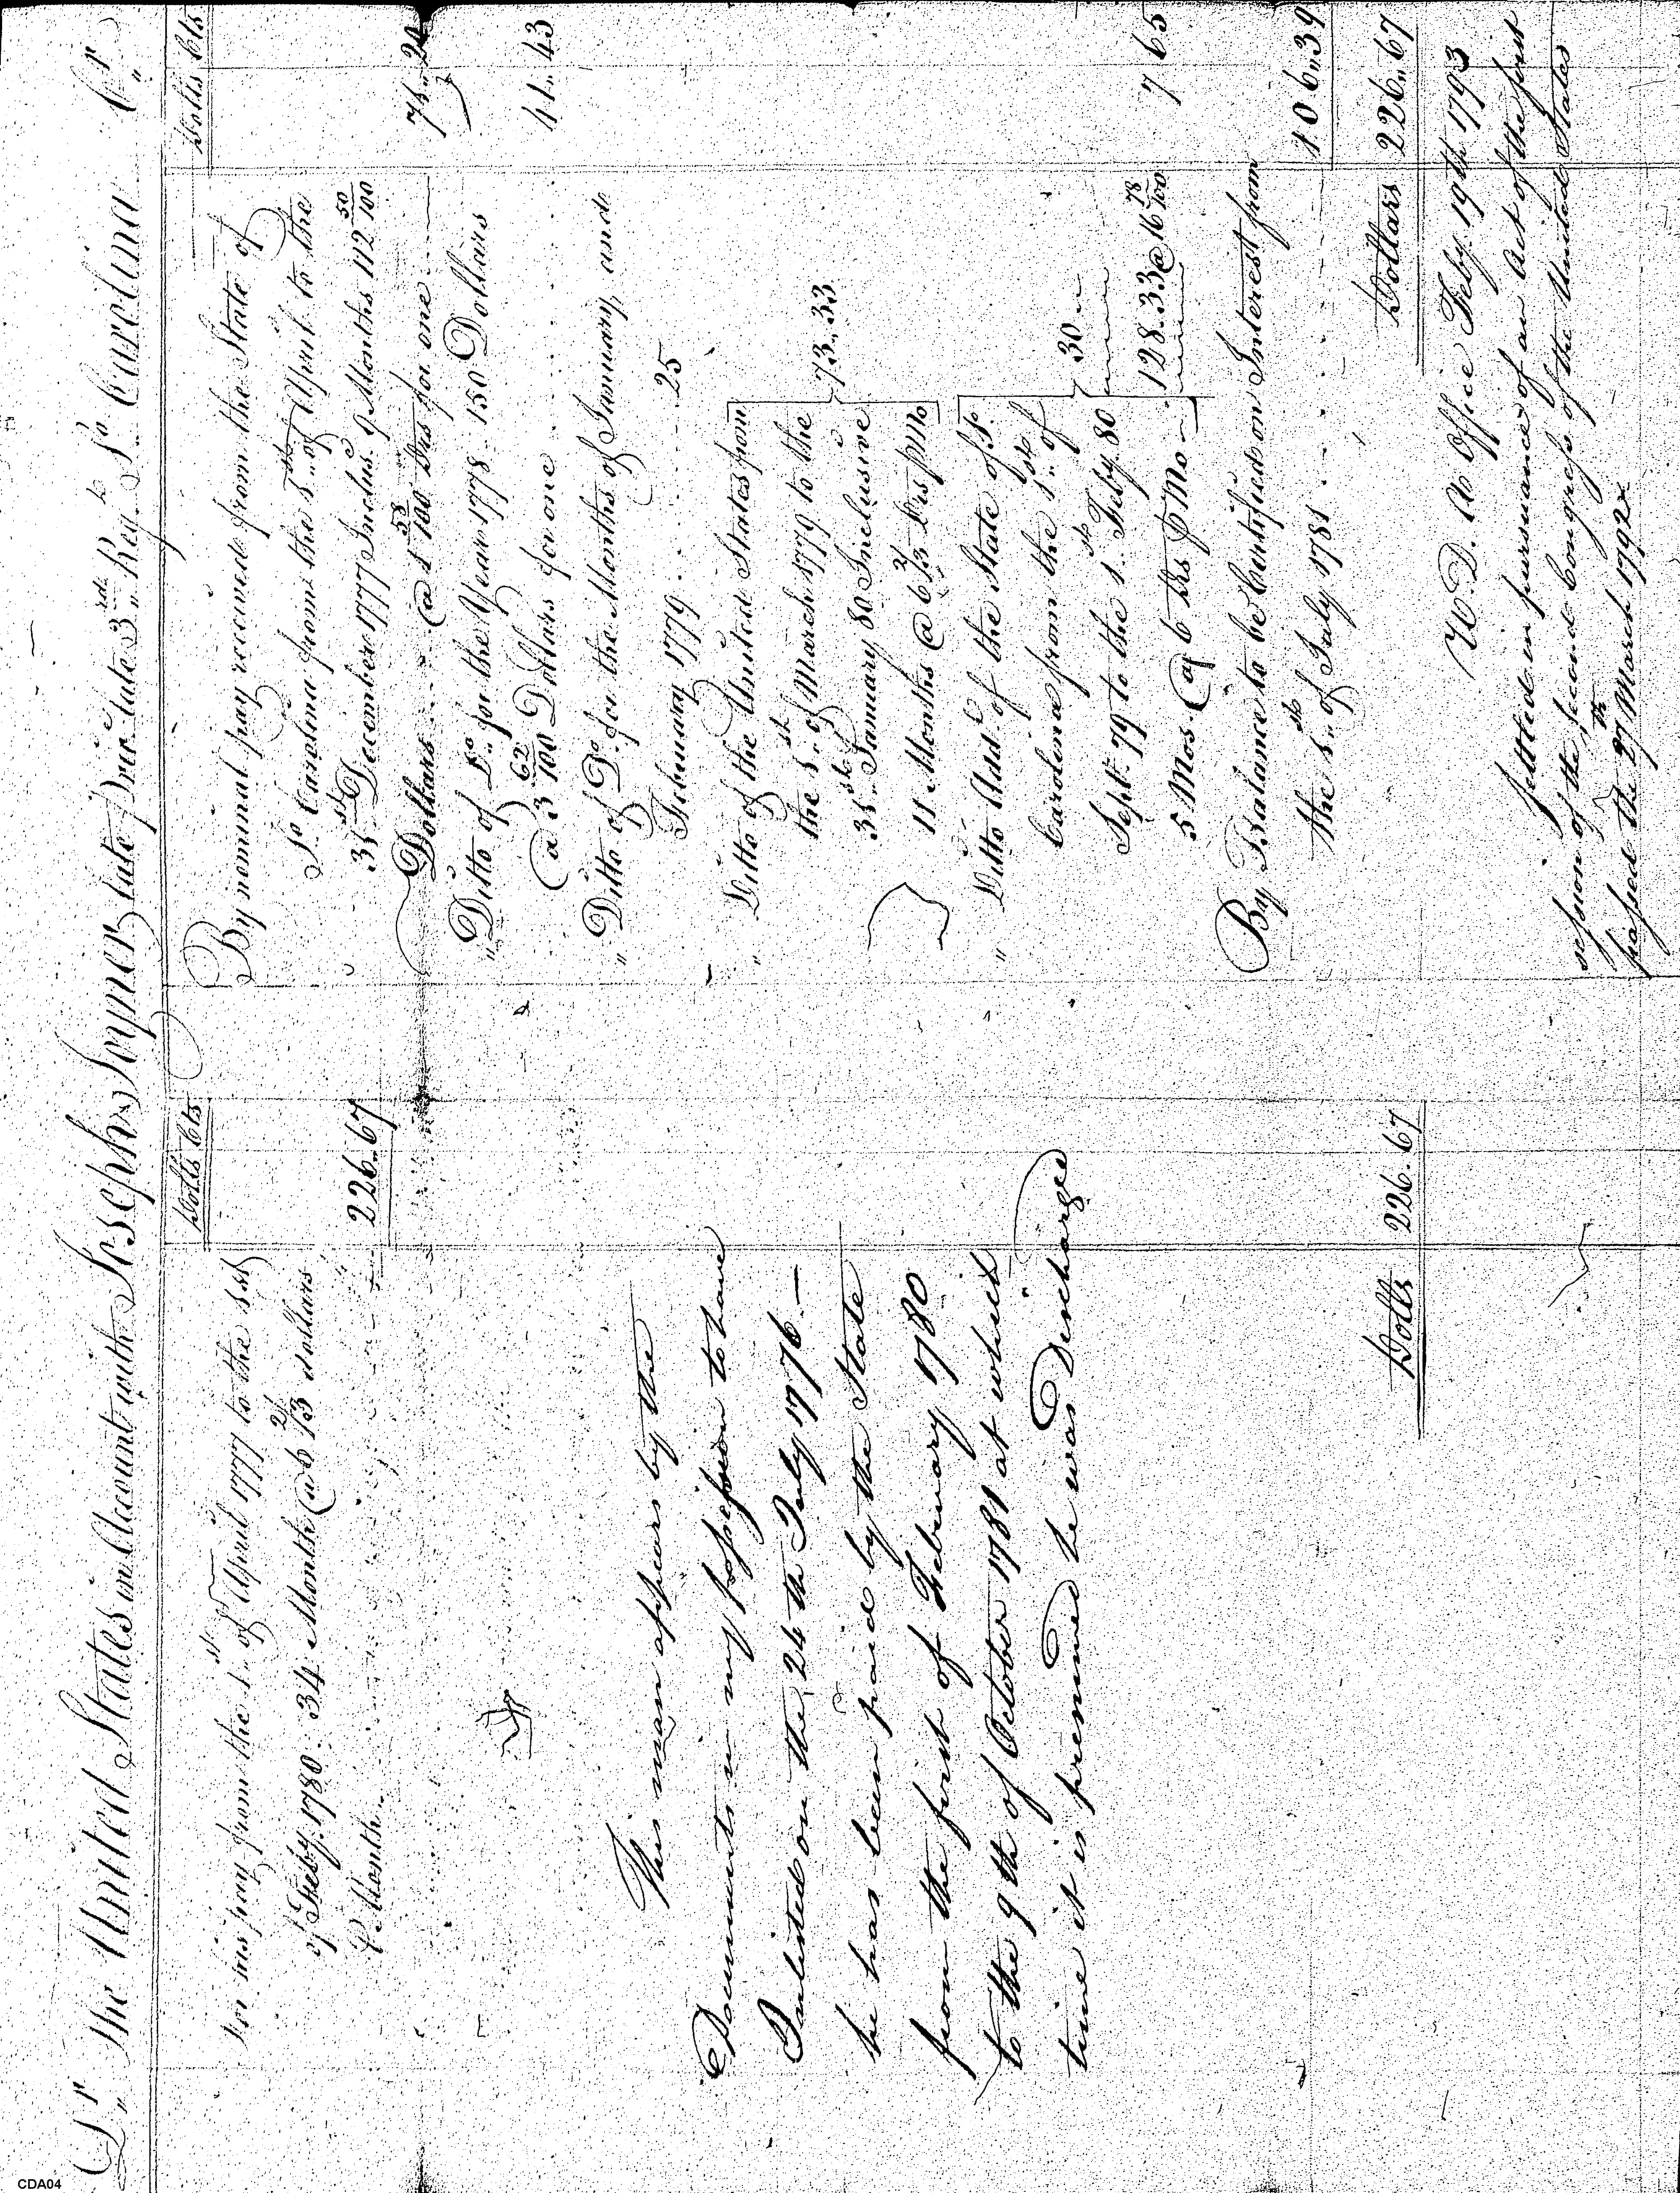 Dr The United States in Account with Joseph Joyner late private 3rd Regt So Carolina Cr
Dolls Cts
For his pay from the 1st of April 1777 to the 1st
of Feby. 1780. 34 Months @ 6 2/3 dollars
P Month 226.67
This man appears by the
Documents in my possession to have
Inlisted on the 24th July 1776 —
he has been paid by the State
from the first of February 1780
to the 9th of October 1781 at which
time it is premised he was Discharged
Dolls 226.67
Dolls Cts
By nominal pay received from the State of
So Carolina from the 1st of April to the
31st December 1777 Inclus. 9 Months 112 50/100
Dollars @ 1 53/100 Drs for one 20
"Ditto of Do for the Year 1778 150 Dollars
@ 3 62/100 Dollars for one 41.43
"Ditto of Do for the Months of January and
February 1779 25
" Ditto of the United States from
the 1st of March 1779 to the
31st January 80 Inclusive 73.33
11 Months @ 6 2/3 Drs p Mo
" Ditto Add.l of the State of So
Carolina from the 1st of
Sept. 79 to the 1st Feby. 80 30
5 Mos. @ 6 Drs P Mo 128.33 @ 16 78/100 7 65
By Balance to be Certified on Interest from
the 1st of July 1781 106.39
Dollars 226.67
W. D. A Office Feby. 19th 1793
Settled in pursuance of an Act of the first
session of the second Congress of the United States
passed the 27th March 1792
CDA04